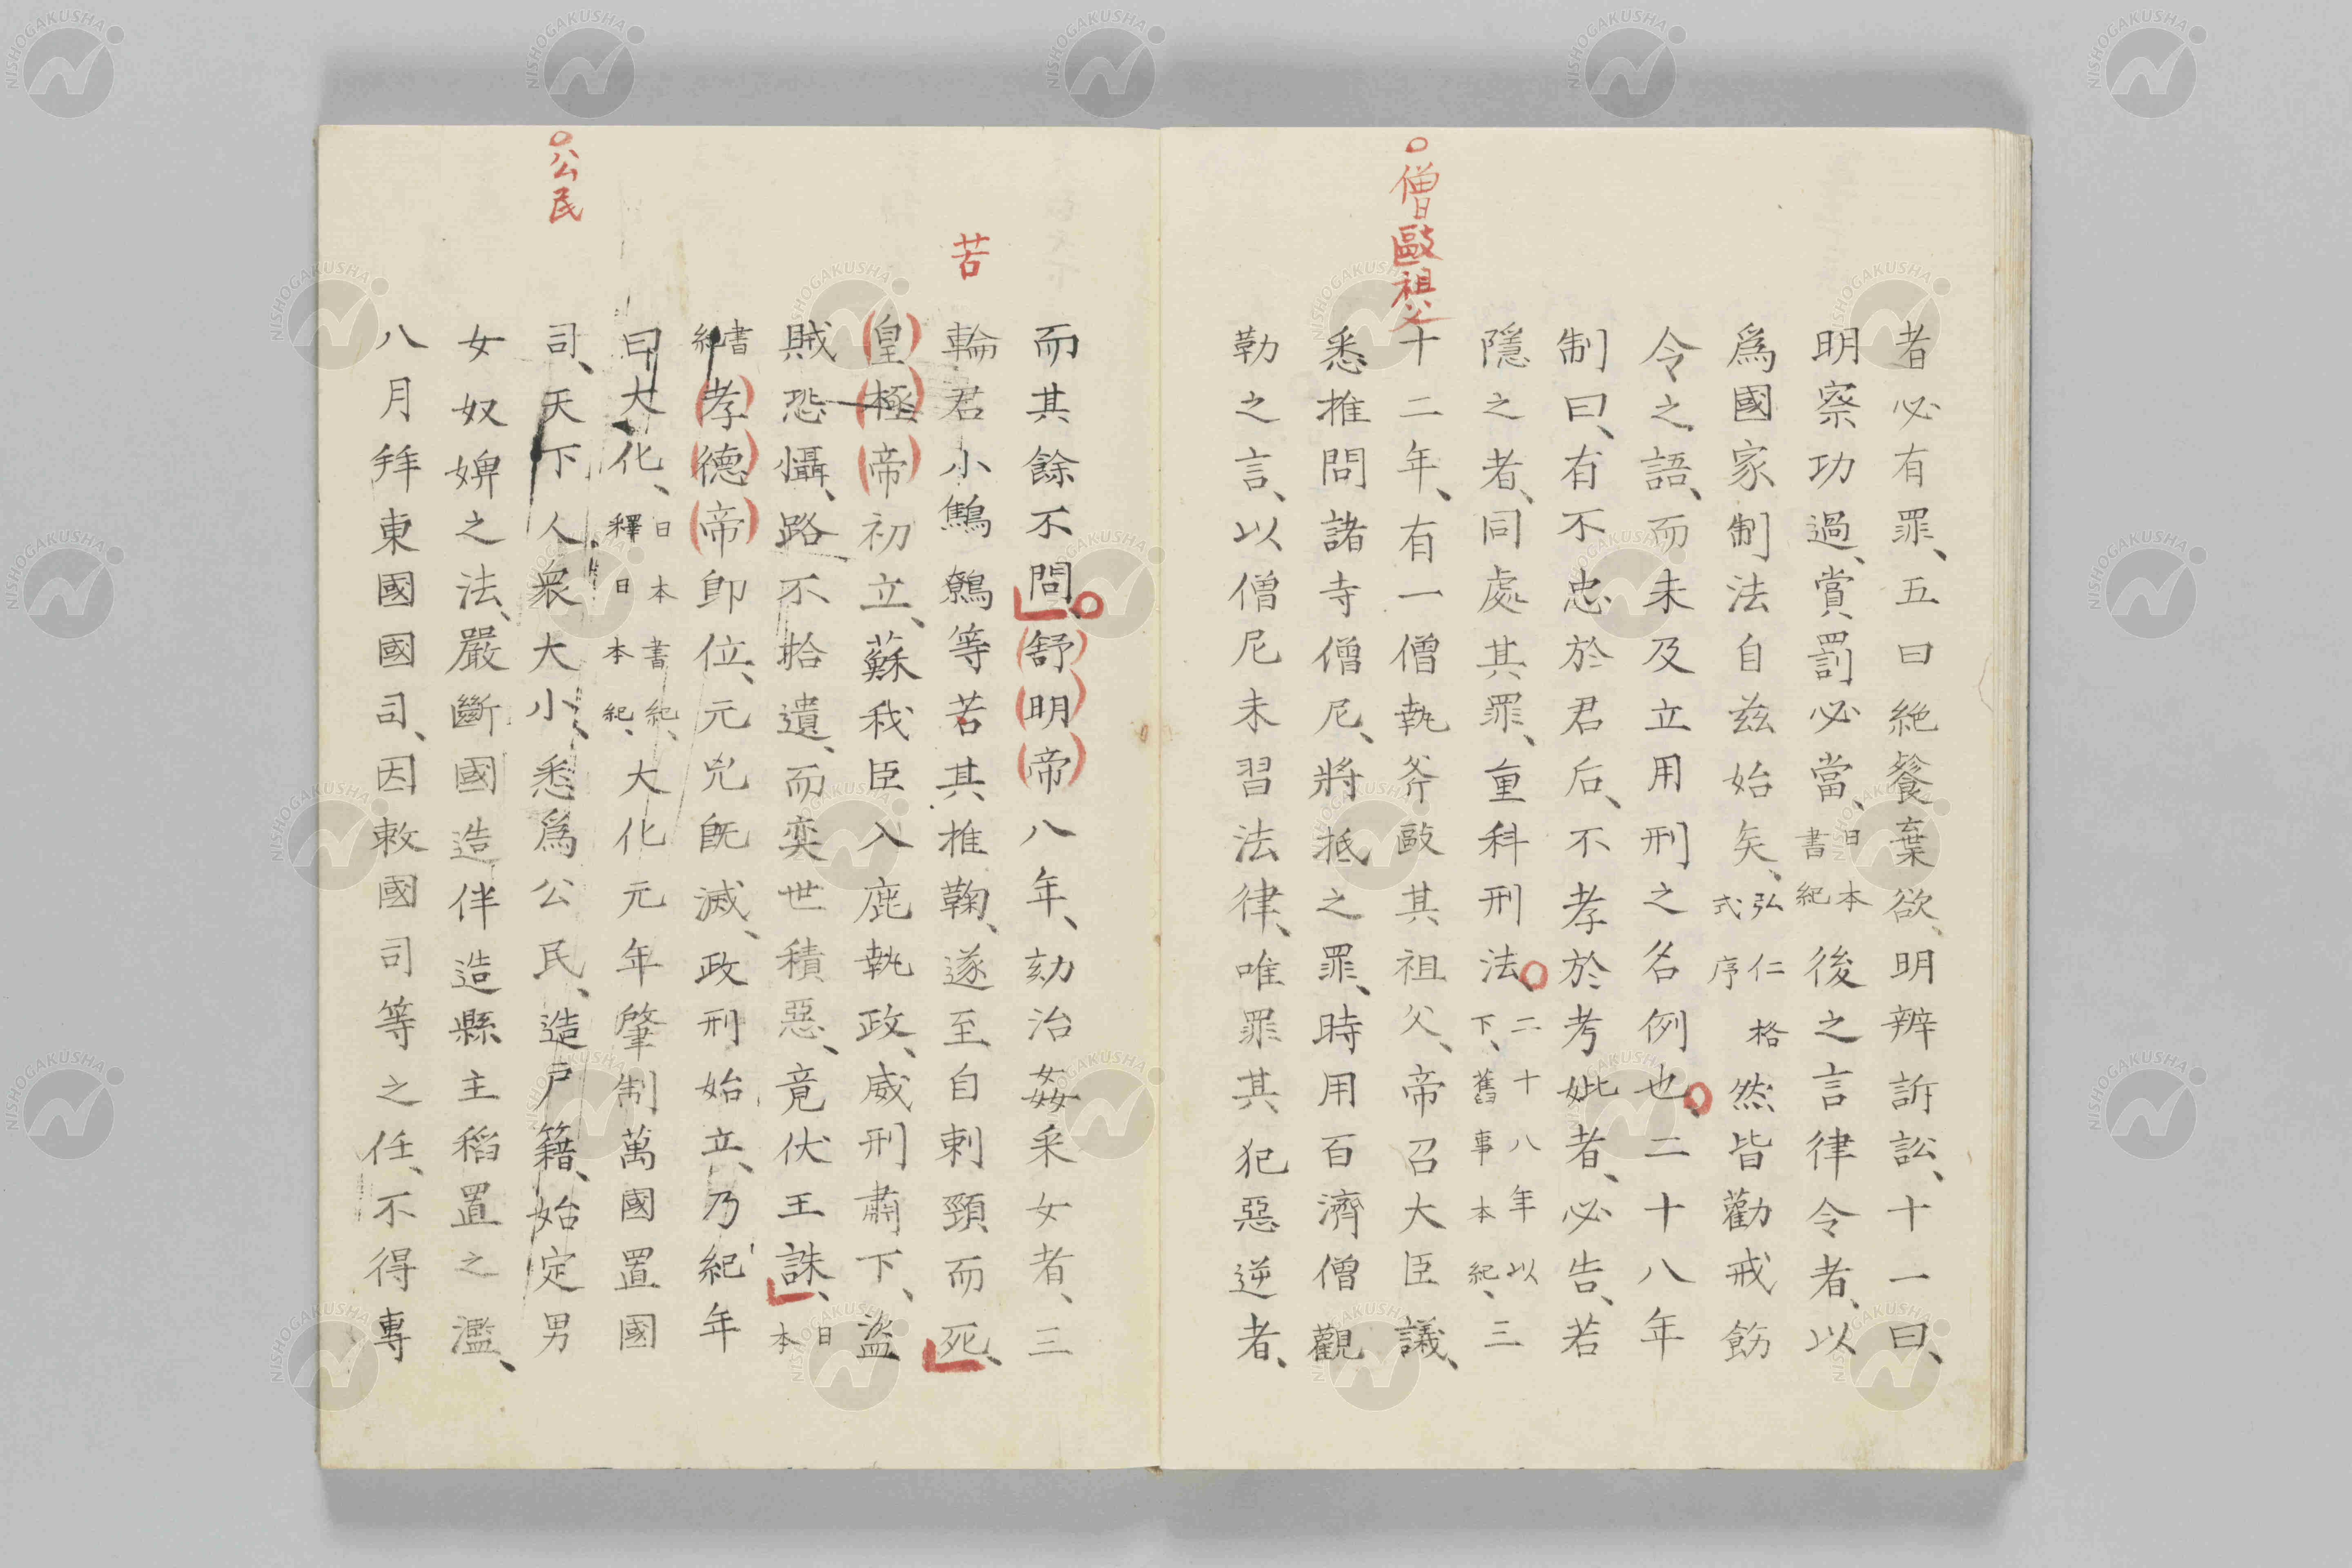 ○僧毆祖父
者必有罪、五曰絶餮棄欲、明辨訴訟、十一曰、
明察功過、賞罰必當、日本書紀後之言律令者、以
爲國家制法自茲始矣、弘仁格式序然皆勸戒飭
令之語、而未及立用刑之名例也、○二十八年
制曰、有不忠於君后、不孝於考妣者、必告、若
隱之者、同處其罪、重科刑法、○二十八年以下、舊事本紀、三
十二年、有一僧執斧毆其祖父、帝召大臣議、
悉推問諸寺僧尼、將抵之罪、時用百濟僧觀
勒之言、以僧尼未習法律、唯罪其犯惡逆者、
苦
○公民
而其餘不問、○舒明帝八年、劾治姦采女者、三
輪君小鷦鷯等苦其推鞫、遂至自刺頸而死、
皇極帝初立、蘇我臣入鹿執政、威刑肅下、盜
賊恐懾、路不拾遺、而奕世積惡、竟伏王誅、日本
書紀孝德帝卽位、元兇既滅、政刑始立、乃紀年
曰大化、日本書紀、釋日本紀、大化元年肇制萬國置國
司、天下人衆大小、悉爲公民、造戸籍、始定男
女奴婢之法、嚴斷國造伴造縣主稻置之濫、
八月拜東國國司、因敕國司等之任、不得專